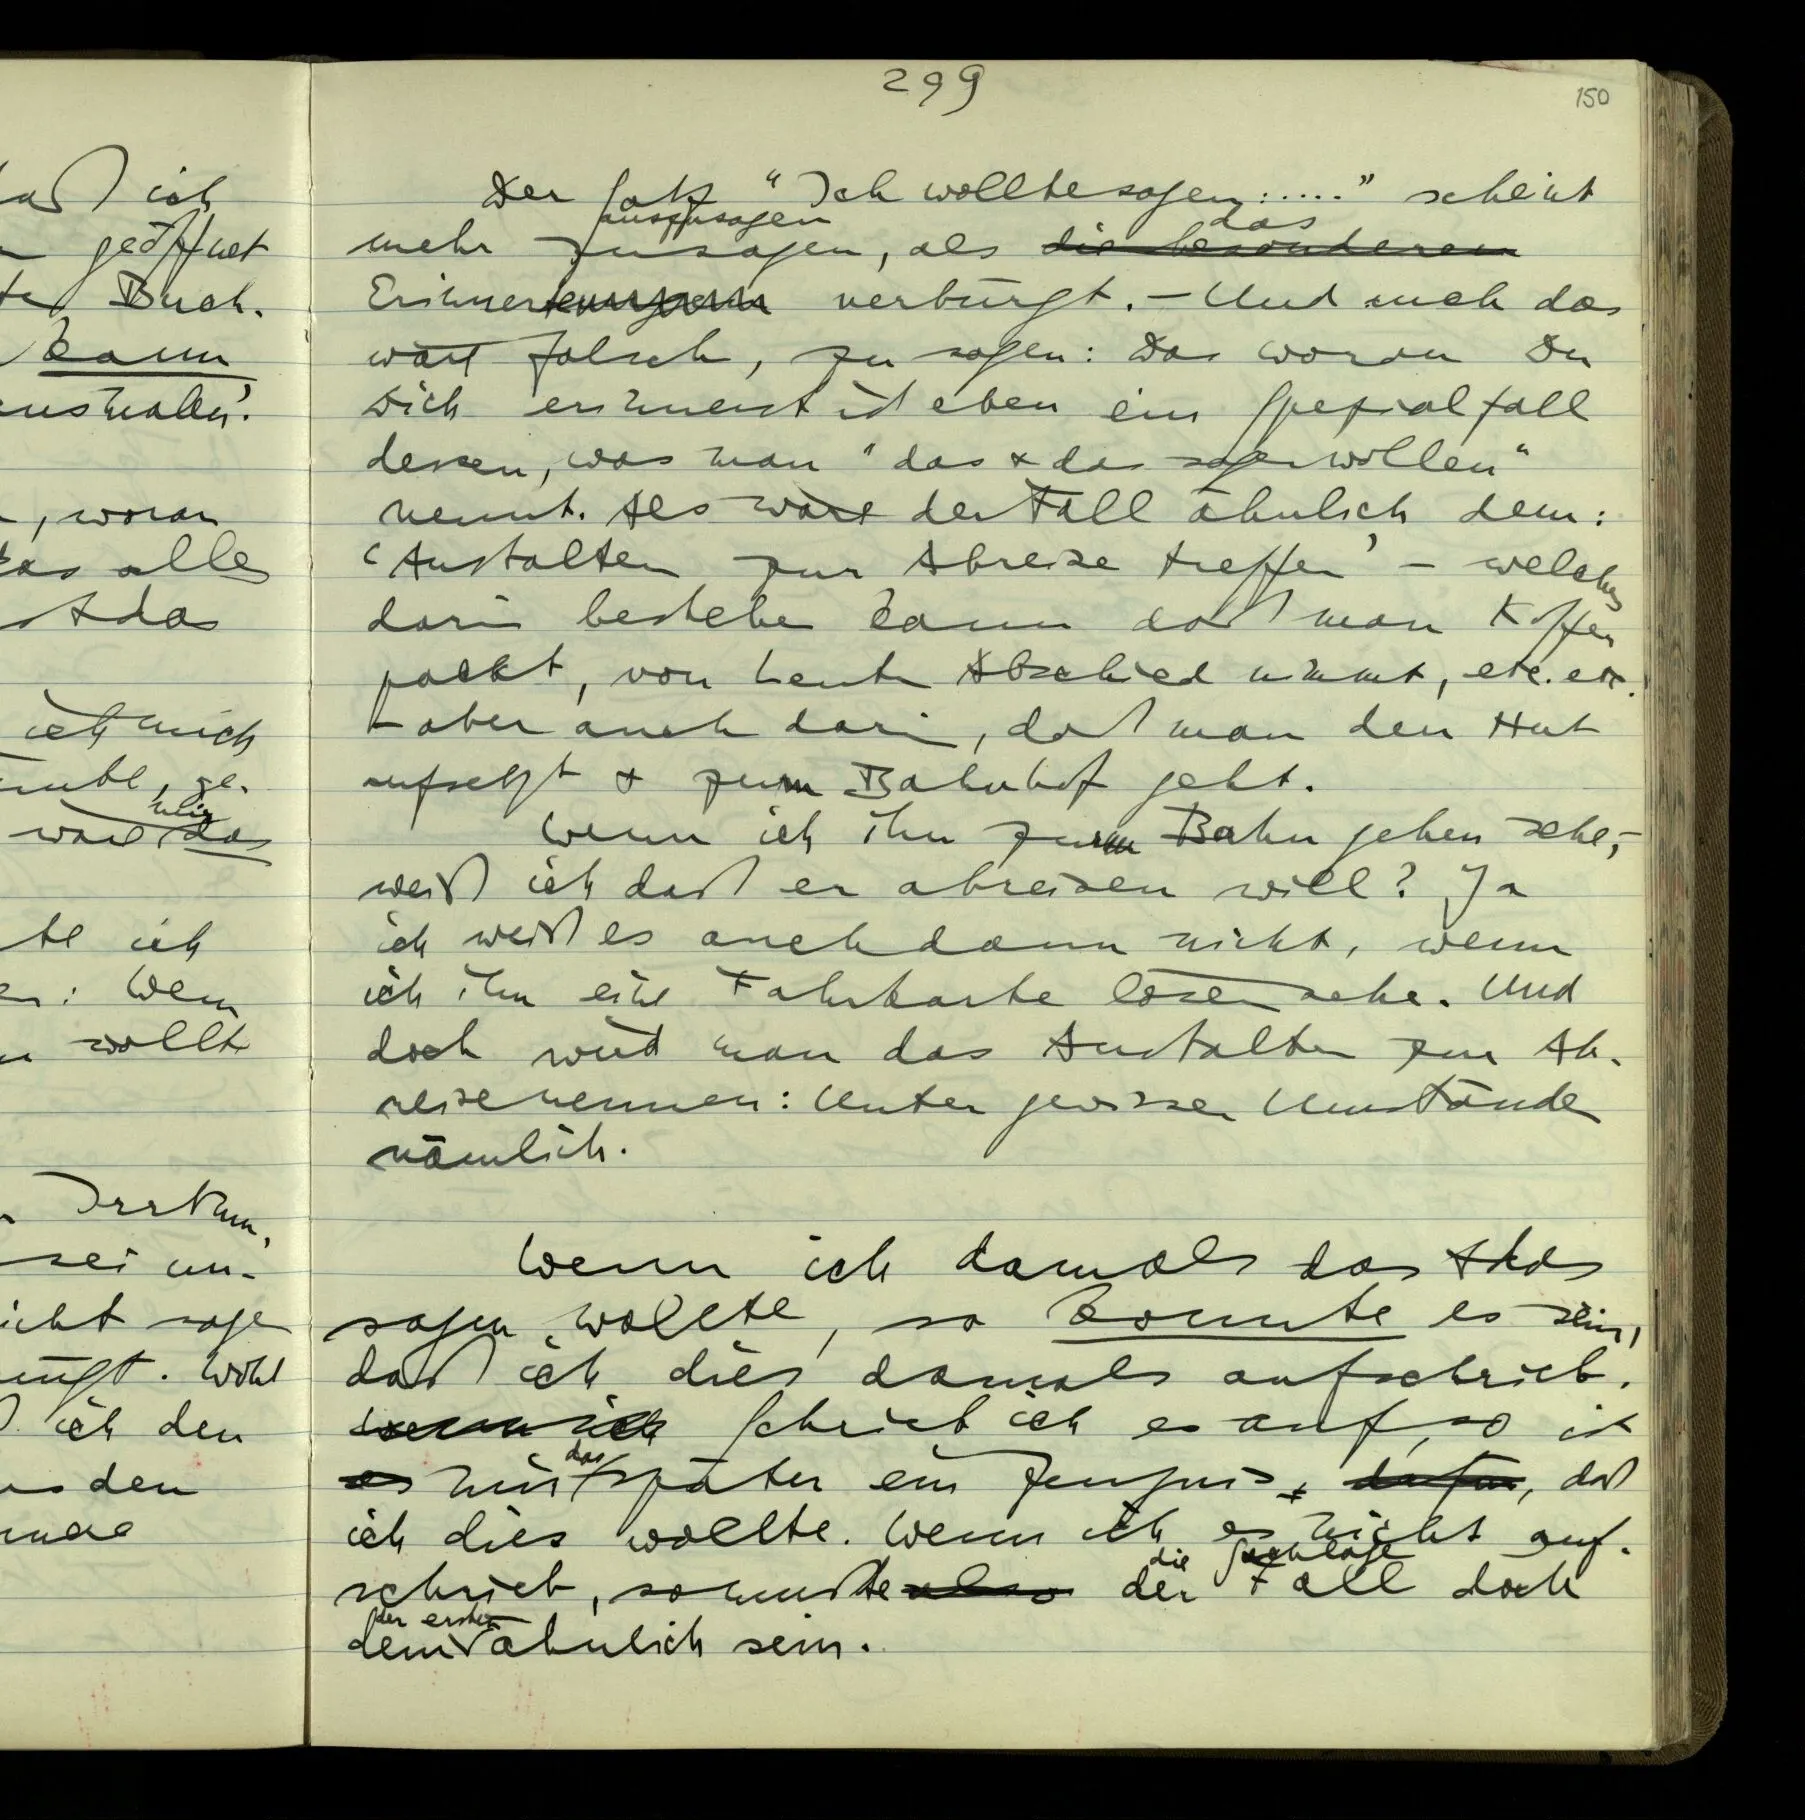 299
150
Der Satz "Ich wollte sagen: ....." scheint
auszusagen das
mehr zu sagen, als die besonderen
Erinnerungen verbürgt. – Und auch das
wäre falsch, zu sagen: Das woran Du
Dich erinnerst ist eben ein Spezialfall
dessen, was man "das & das sagen wollen"
nennt. Als wäre der Fall ähnlich dem:
'Anstalten zur Abreise treffen' – welches
darin bestehen kann daß man Koffer
packt, von Leuten Abschied nimmt, etc. etc.
– aber auch darin, daß man den Hut
aufsetzt & zum Bahnhof geht.
Wenn ich ihn zur Bahn gehen sehe, –
weiß ich daß er abreisen will? Ja
ich weiß es auch dann nicht, wenn
ich ihn eine Fahrkarte lösen sehe. Und
doch wird man das Anstalten zur Ab-
reise nennen: Unter gewissen Umständen
nämlich.
Wenn ich damals das & das
sagen wollte, so konnte es sein,
daß ich dies damals aufschrieb.
Wenn ich Schrieb ich es auf, so ist
das
es mir später ein Zeugnis, dafür, daß
ich dies wollte. Wenn ich es nicht auf-
die Sachlage
schrieb, so mußte also der Fall doch
der ersten
dem ähnlich sein.
daß ich
geöffnet
Buch.
kann
, woran
das alle
& das
ich mich
ge-
mir
war das
te ich
: Wenn
wollte
Irrtum,
sei un-
nicht sage
. Wohl
ich den
den